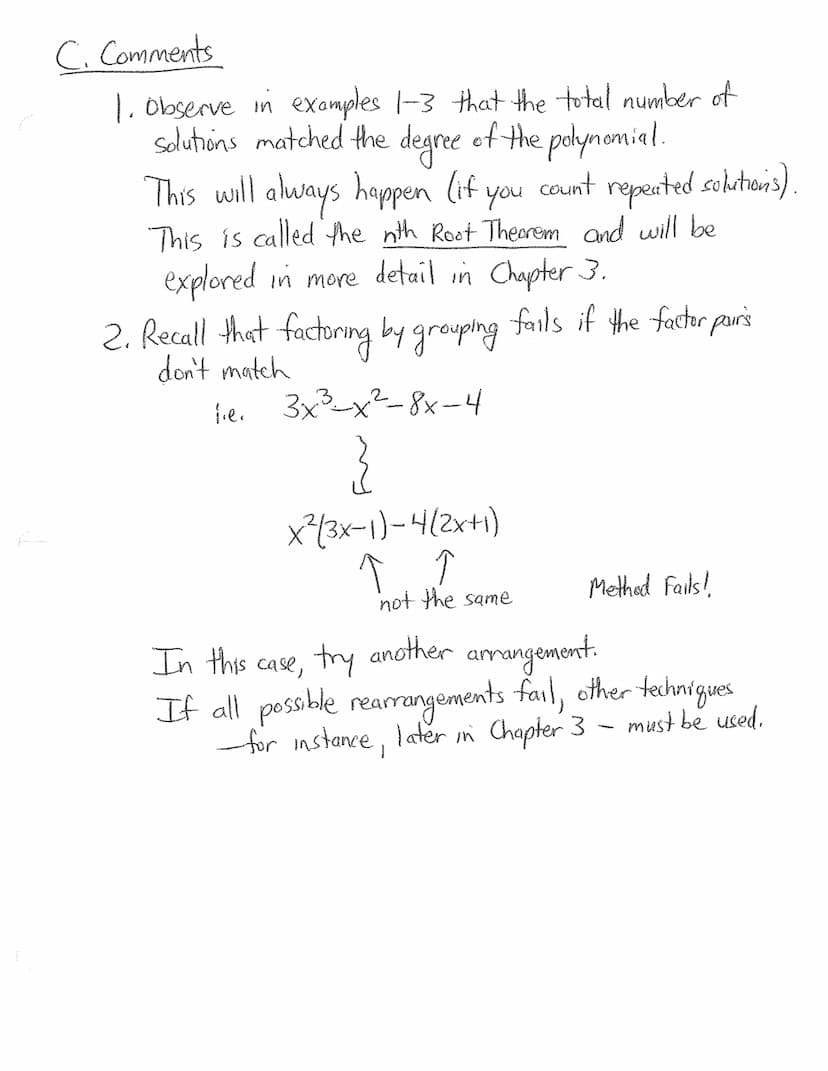 C. Comments
1. Observe in examples 1-3 that the total number of
solutions matched the degree of the polynomial.
This will always happen (if you count repeated solutions).
This is called the nth Root Theorem and will be
explored in more detail in Chapter 3.
2. Recall that factoring by grouping fails if the factor pairs
don't match
i.e. 3x³-x²-8x-4
x²(3x-1)-4(2x+1)
not the same
Method Fails!
In this case, try another arrangement.
If all possible rearrangements fail, other techniques
-for instance, later in Chapter 3 - must be used.